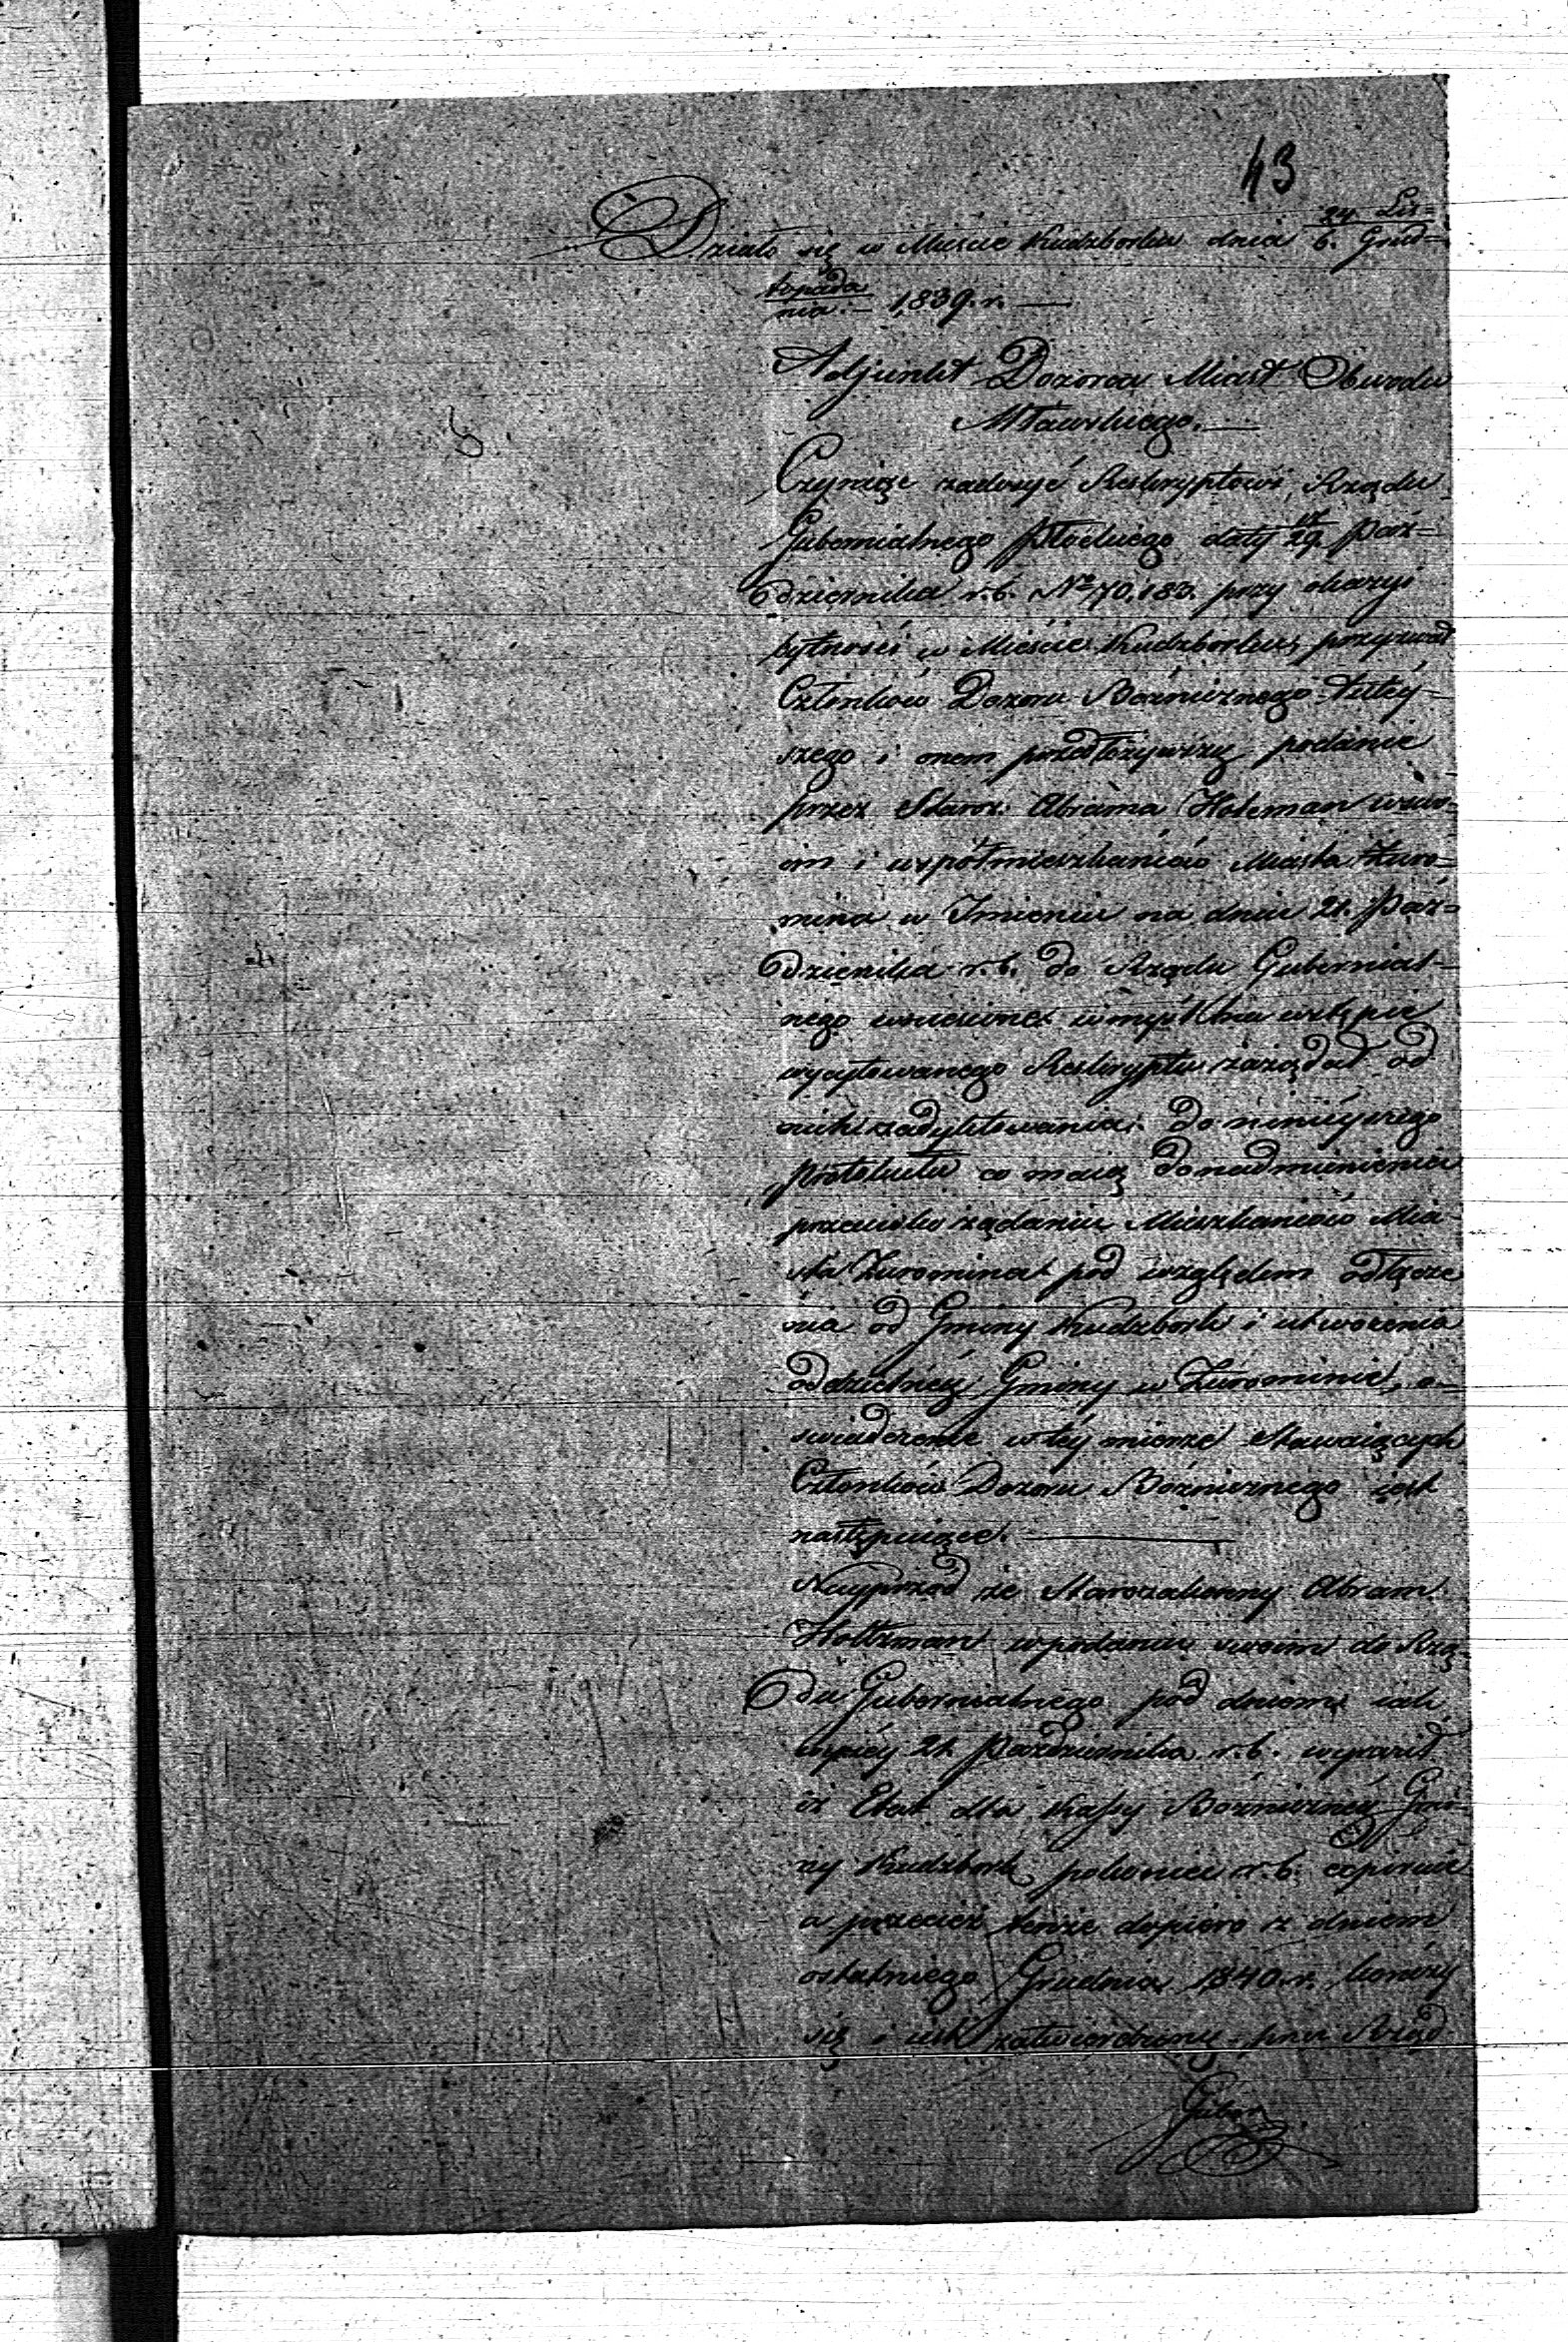 43
Działo się w Mieście Kudzborku dnia 24. Lis=
6. Grud=
topada
nia. — 1839. r. —
Adjunkt Dozorca Miast Obwodu
Mławskiego. —
Czyniąc zadosyć Reskryptowi Rządu
Gubernialnego Płockiego daty 17/29 Paź=
dziernika r. b. No 70,183. przy okazyi
bytności w Mieście Kudzborku, przyzwał
Członków Dozoru Bożnicznego tutéy=
szego i onem przedłożywszy podanie
przez Staroz. Abrama Holcman
om i współmieszkańców Miasta Żuro=
mina w Imieniu na dniu 21. Paź=
dziernika r. b. do Rządu Gubernial=
nego wniesione w myśl na wstępie
wycytowanego Reskryptu zażądał od
nich zadyktowania do ninieyszego
protokułu co maią do nadmienienia
przeciwko żądaniu Mieszkańców Mia=
sta Żuromina pod względem odłącze
nia od Gminy Kudzbork i utworzenia
oddzielnéy Gminy w Żurominie, o=
świadczenie w téy mierze Stawaiących
Członków Dozoru Bożnicznego iest
następuiące. —
Nayprzód że Starozakonny Abram
Holtzman w podaniu swoim do Rzą=
du Gubernialnego pod dniem iak
wyżéy 21. Października r. b. wyraził
iż Etat dla Kassy Bożnicznéy Gmi=
ny Kudzbork pokoniec r. b. expiruie
a przecież tenże dopiero z dniem
ostatniego Grudnia 1840. r. kończy
się i iest zatwierdzony przez Rząd
Guber